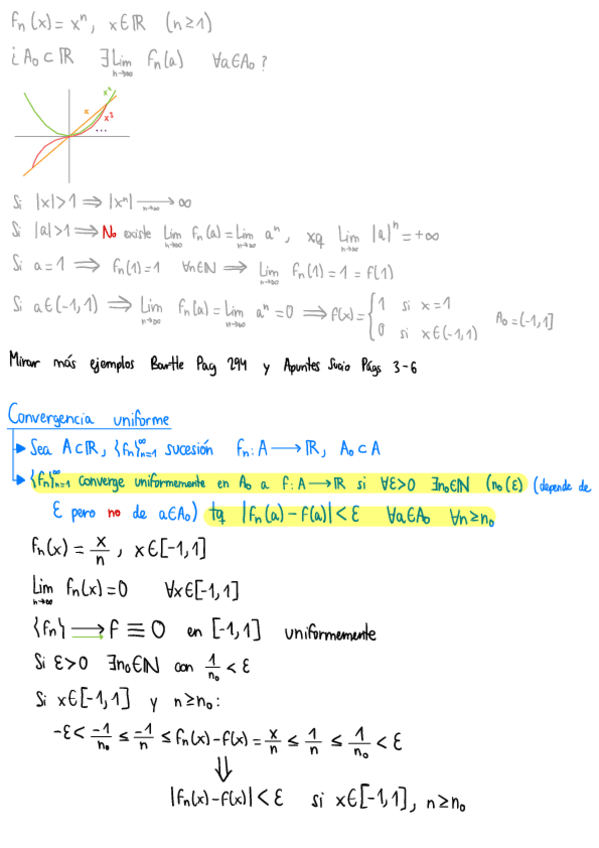 fn(x) = xⁿ, x∈ℝ (n≥1)
¿A₀⊂ℝ ∃Lim n→∞ fn(a) ∀a∈A₀?
x²
x
x³
...
Si |x|>1 ⇒ |xⁿ| ⟶ n→∞ ∞
Si |a|>1 ⇒ No existe Lim n→∞ fn(a) = Lim n→∞ aⁿ, xq Lim n→∞ |a|ⁿ = +∞
Si a=1 ⇒ fn(1)=1 ∀n∈ℕ ⇒ Lim n→∞ fn(1) = 1 = f(1)
Si a∈(-1,1) ⇒ Lim n→∞ fn(a) = Lim n→∞ aⁿ = 0 ⇒ f(x) = { 1 si x=1
0 si x∈(-1,1) A₀=(-1,1]
Mirar más ejemplos Bartle Pag 294 y Apuntes Sucio Págs 3-6
Convergencia uniforme
Sea A⊂ℝ, {fn}∞n=1 sucesión fn: A ⟶ ℝ, A₀⊂A
{fn}∞n=1 converge uniformemente en A₀ a f: A⟶ℝ si ∀ε>0 ∃n₀∈ℕ (n₀(ε) (depende de
ε pero no de a∈A₀) tq |fn(a)-f(a)|<ε ∀a∈A₀ ∀n≥n₀
fn(x) = x/n, x∈[-1,1]
Lim n→∞ fn(x) = 0 ∀x∈[-1,1]
{fn} ⟶ f ≡ 0 en [-1,1] uniformemente
Si ε>0 ∃n₀∈ℕ con 1/n₀ < ε
Si x∈[-1,1] y n≥n₀:
-ε < -1/n₀ ≤ -1/n ≤ fn(x)-f(x) = x/n ≤ 1/n ≤ 1/n₀ < ε
⇓
|fn(x)-f(x)|<ε si x∈[-1,1], n≥n₀